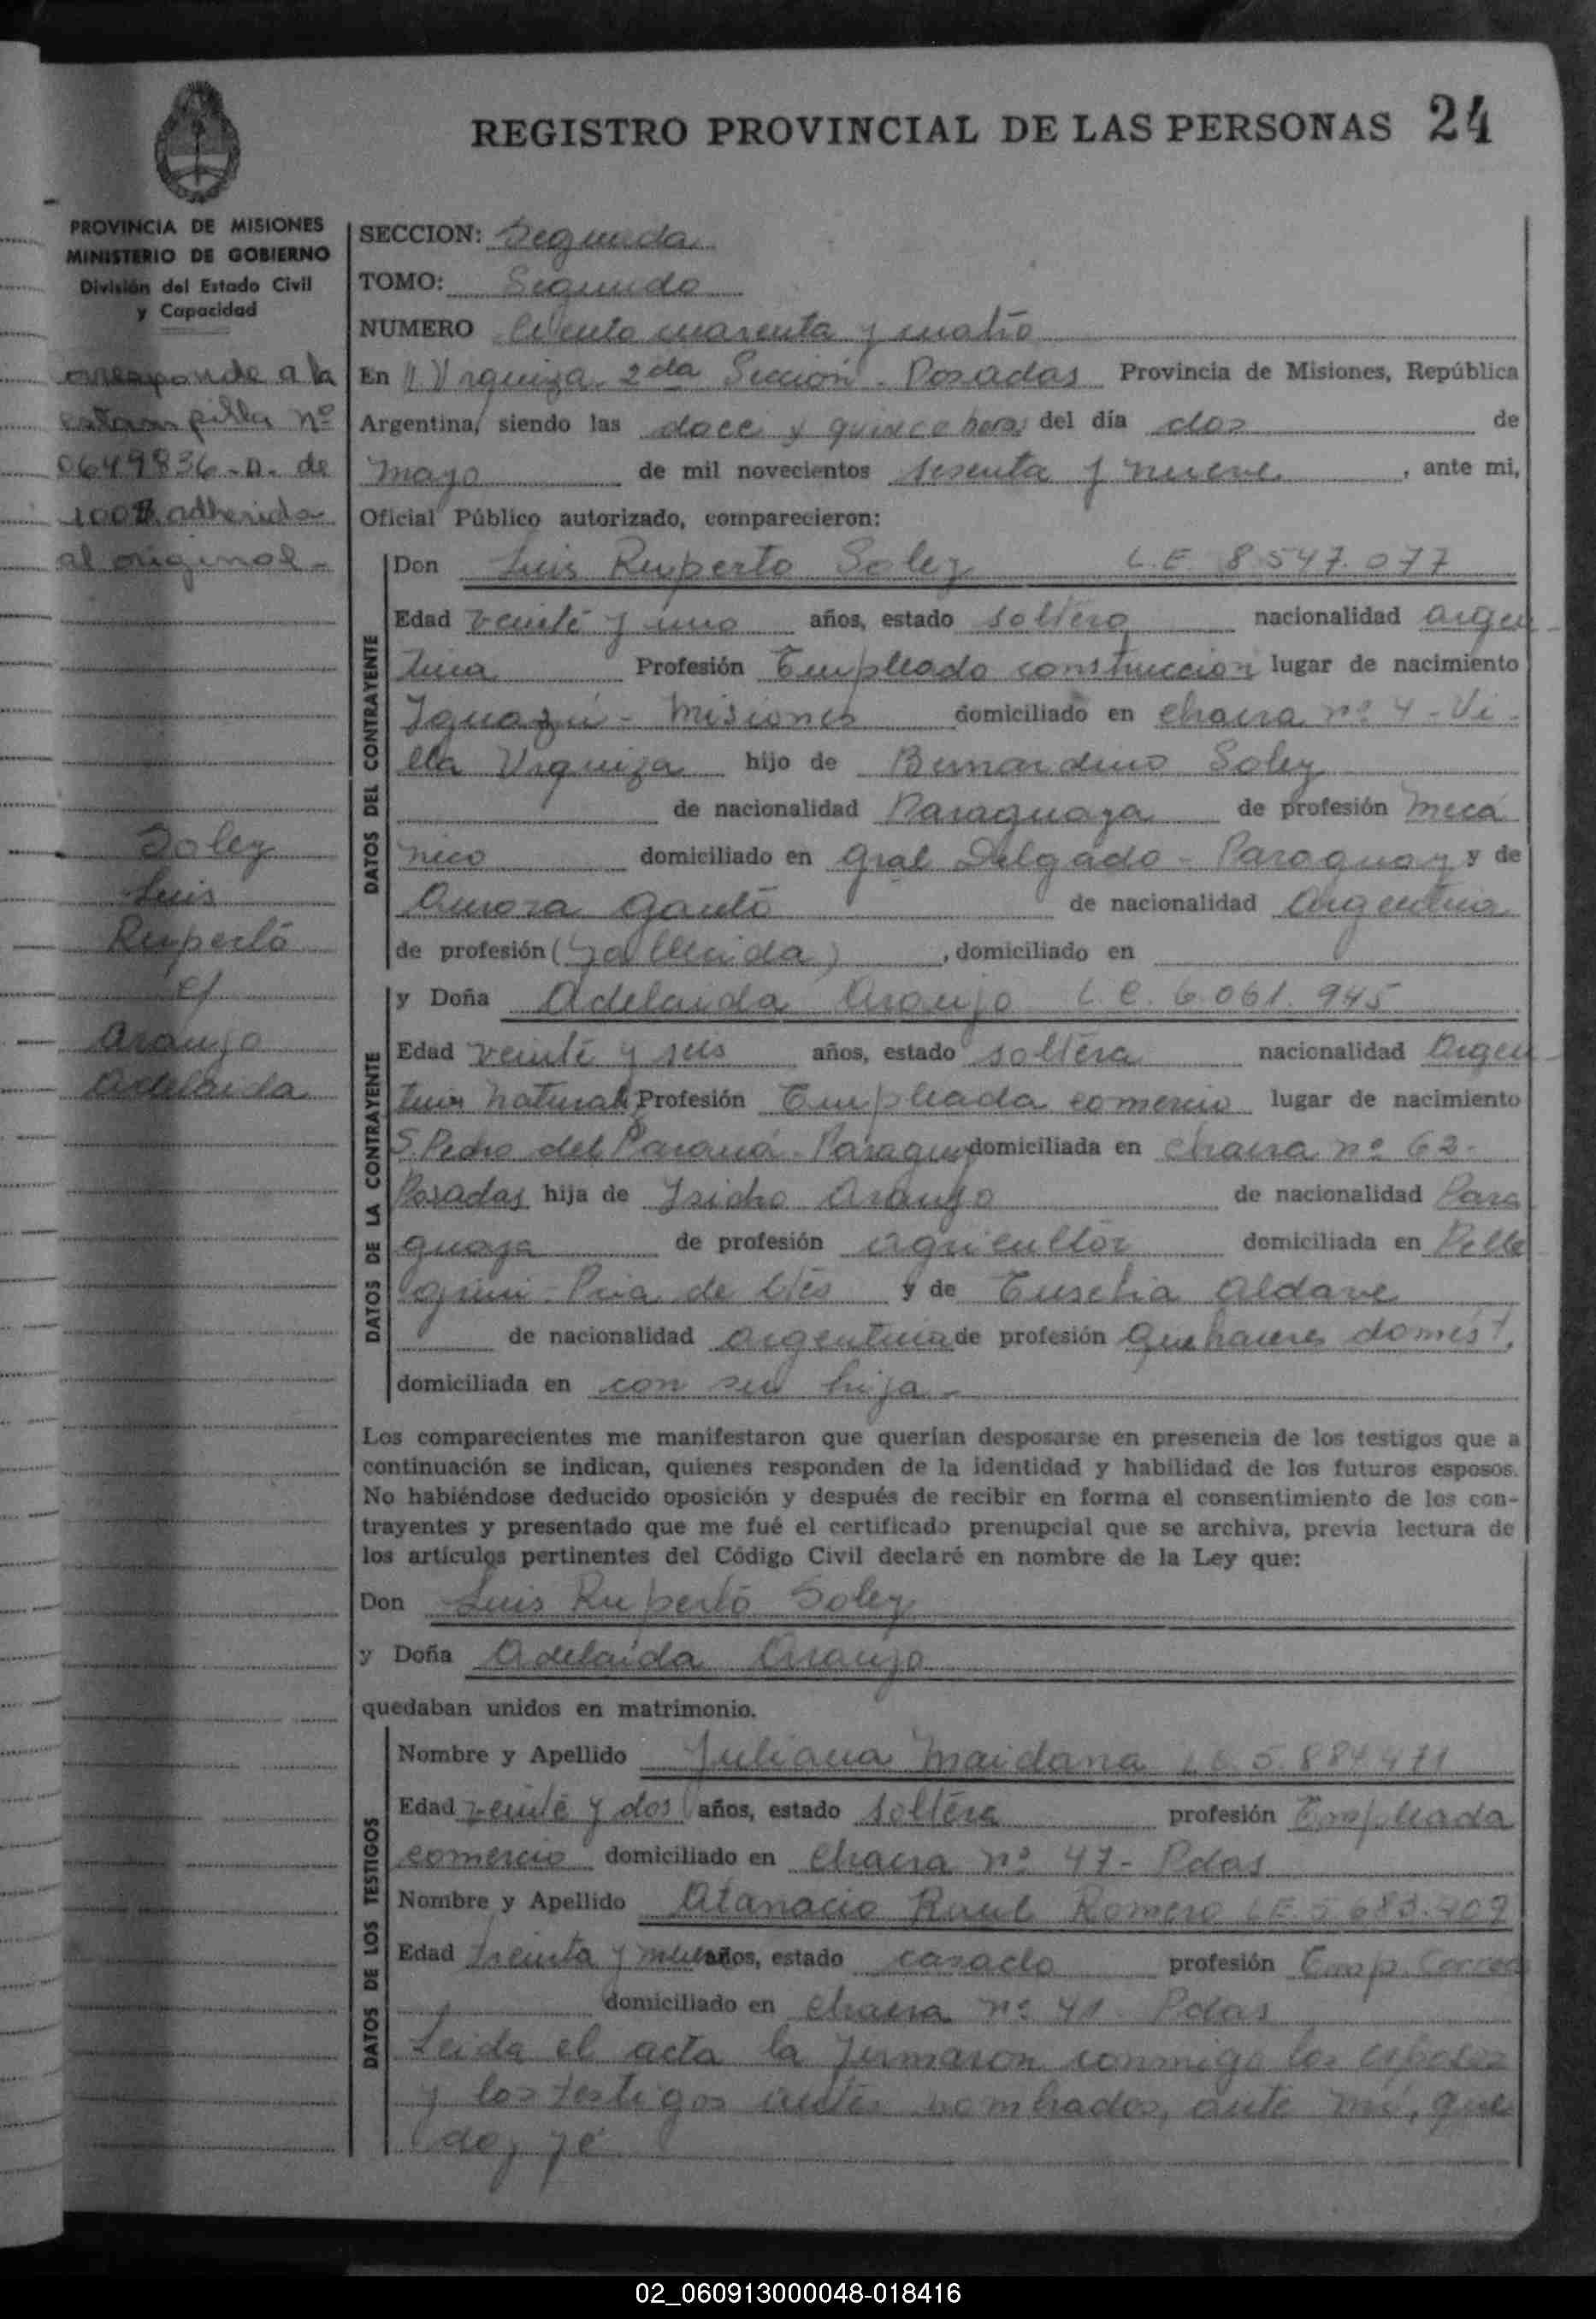 REGISTRO PROVINCIAL DE LAS PERSONAS 24
PROVINCIA DE MISIONES
MINISTERIO DE GOBIERNO
División del Estado Civil
y Capacidad
corresponde a la
estampilla nº
0649836-D. de
100$ adherida
al original-
Soley
Luis
Ruperto
c/
Araujo
Adelaida
SECCION: Segunda
TOMO: Segundo
NUMERO Ciento cuarenta y cuatro
En V. Urquiza 2da Sección - Posadas Provincia de Misiones, República
Argentina, siendo las doce y quince horas del día dos de
mayo de mil novecientos sesenta y nueve, ante mi,
Oficial Público autorizado, comparecieron:
DATOS DEL CONTRAYENTE
Don Luis Ruperto Soley L.E. 8.547.077
Edad veinte y uno años, estado soltero nacionalidad argen
tina Profesión Empleado construccion lugar de nacimiento
Iguazú - Misiones domiciliado en chacra nº 4 - Vi
lla Urquiza hijo de Bernardino Soley
de nacionalidad Paraguaya de profesión mecá
nico domiciliado en Gral Delgado - Paraguay y de
Aurora Gauto de nacionalidad Argentina
de profesión (fallecida), domiciliado en
DATOS DE LA CONTRAYENTE
y Doña Adelaida Araujo L.C. 6.061.945
Edad veinte y seis años, estado soltera nacionalidad Argen
tina Profesión Empleada comercio lugar de nacimiento
S. Pedro del Paraná - Paraguay domiciliada en chacra nº 62-
Posadas hija de Isidro Araujo de nacionalidad Para
guaya de profesión agricultor domiciliada en Pelle
grini - Pcia de Ctes y de Eusebia Aldave
de nacionalidad argentina de profesión Quehaceres domést.
domiciliada en con su hija-
Los comparecientes me manifestaron que querían desposarse en presencia de los testigos que a
continuación se indican, quienes responden de la identidad y habilidad de los futuros esposos.
No habiéndose deducido oposición y después de recibir en forma el consentimiento de los con-
trayentes y presentado que me fué el certificado prenupcial que se archiva, previa lectura de
los artículos pertinentes del Código Civil declaré en nombre de la Ley que:
Don Luis Ruperto Soley
y Doña Adelaida Araujo
quedaban unidos en matrimonio.
DATOS DE LOS TESTIGOS
Nombre y Apellido Juliana Maidana L.C. 5.884.471
Edad veinte y dos años, estado soltera profesión Empleada
comercio domiciliado en Chacra nº 47- Pdas
Nombre y Apellido Atanacio Raul Romero L.E. 5.683.409
Edad treinta y nueve años, estado casado profesión Emp. Correo
domiciliado en chacra nº 41- Pdas
Leida el acta la firmaron conmigo los esposos
y los testigos antes nombrados, ante mi, que
doy fé
02_060913000048-018416